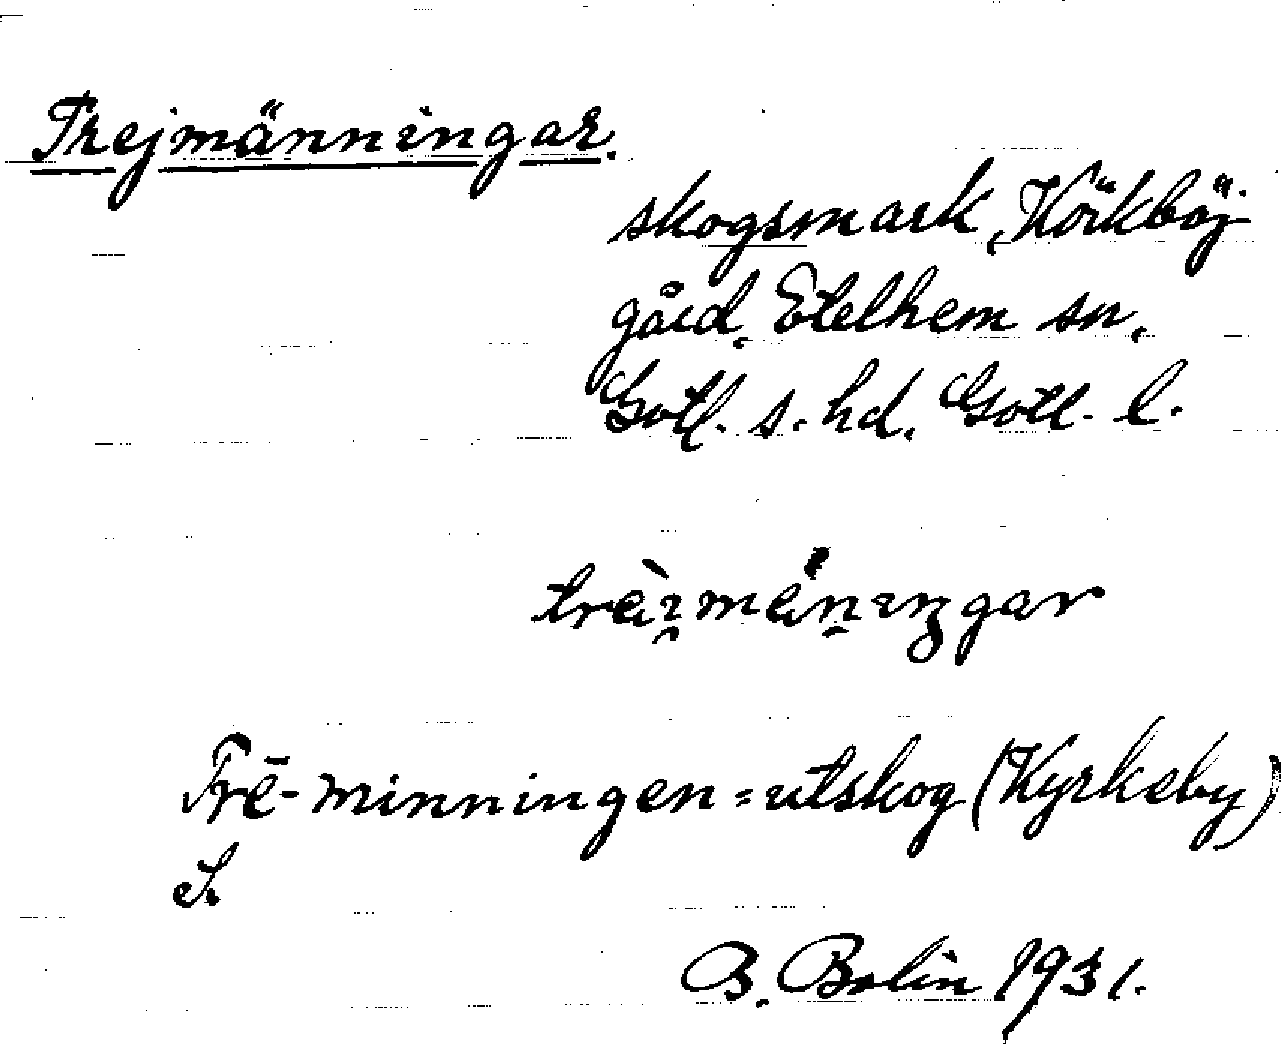 Trejmänningar.
skogsmark, Körkböj
gård, Etelhem sn,
Gotl. s. hd. Gotl. l.
Trē-minningen = utskog (Kyrkeby)
S.
B. Bolin 1931.